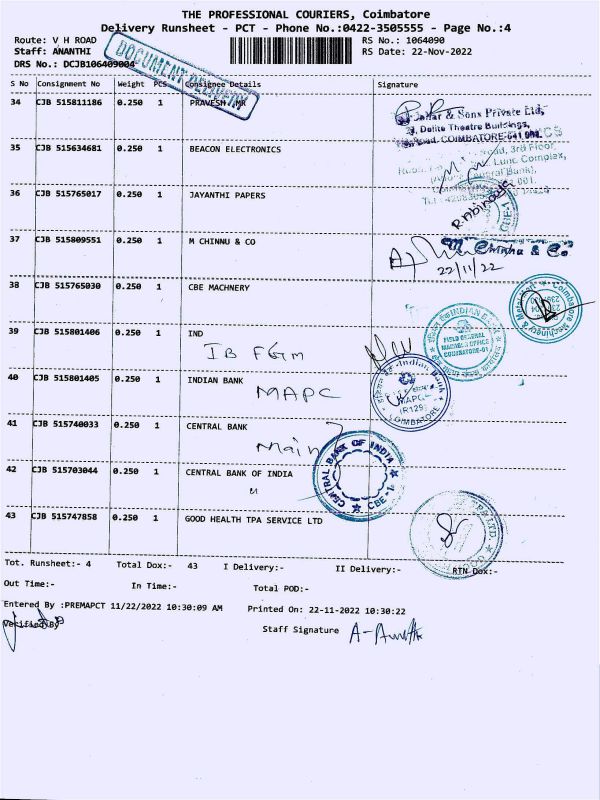 THE PROFESSIONAL COURIERS, Coimbatore
Delivery Runsheet - PCT - Phone No.:0422-3505555 - Page No.:4
Route: V H ROAD RS No.: 1064090
Staff: ANANTHI RS Date: 22-Nov-2022
DRS No.: DCJB106409004
DOCUMENT DELIVERY
S No Consignment No Weight PCS Consignee Details Signature
34 CJB 515811186 0.250 1 PRAVESH MR
& Sons Private Ltd,
Delite Theatre Buildings,
COIMBATORE-641 001.
35 CJB 515634681 0.250 1 BEACON ELECTRONICS
Road, 3rd Floor
Lunc Complex,
36 CJB 515765017 0.250 1 JAYANTHI PAPERS
R. Abinaya
37 CJB 515809551 0.250 1 M CHINNU & CO
M. Chinnu & Co
22/11/22
38 CJB 515765030 0.250 1 CBE MACHNERY
Coimbatore Machinery &
39 CJB 515801406 0.250 1 IND
IB FGM
INDIAN BANK
FIELD GENERAL
MANAGER OFFICE
COIMBATORE-01
40 CJB 515801405 0.250 1 INDIAN BANK
MAPC
Indian Bank
MAPC
COIMBATORE
41 CJB 515740033 0.250 1 CENTRAL BANK
Main
42 CJB 515703044 0.250 1 CENTRAL BANK OF INDIA
"
CENTRAL BANK OF INDIA
CBE-1
43 CJB 515747858 0.250 1 GOOD HEALTH TPA SERVICE LTD
Tot. Runsheet:- 4 Total Dox:- 43 I Delivery:- II Delivery:- RTN Dox:-
Out Time:- In Time:- Total POD:-
Entered By :PREMAPCT 11/22/2022 10:30:09 AM Printed On: 22-11-2022 10:30:22
Verified By Staff Signature